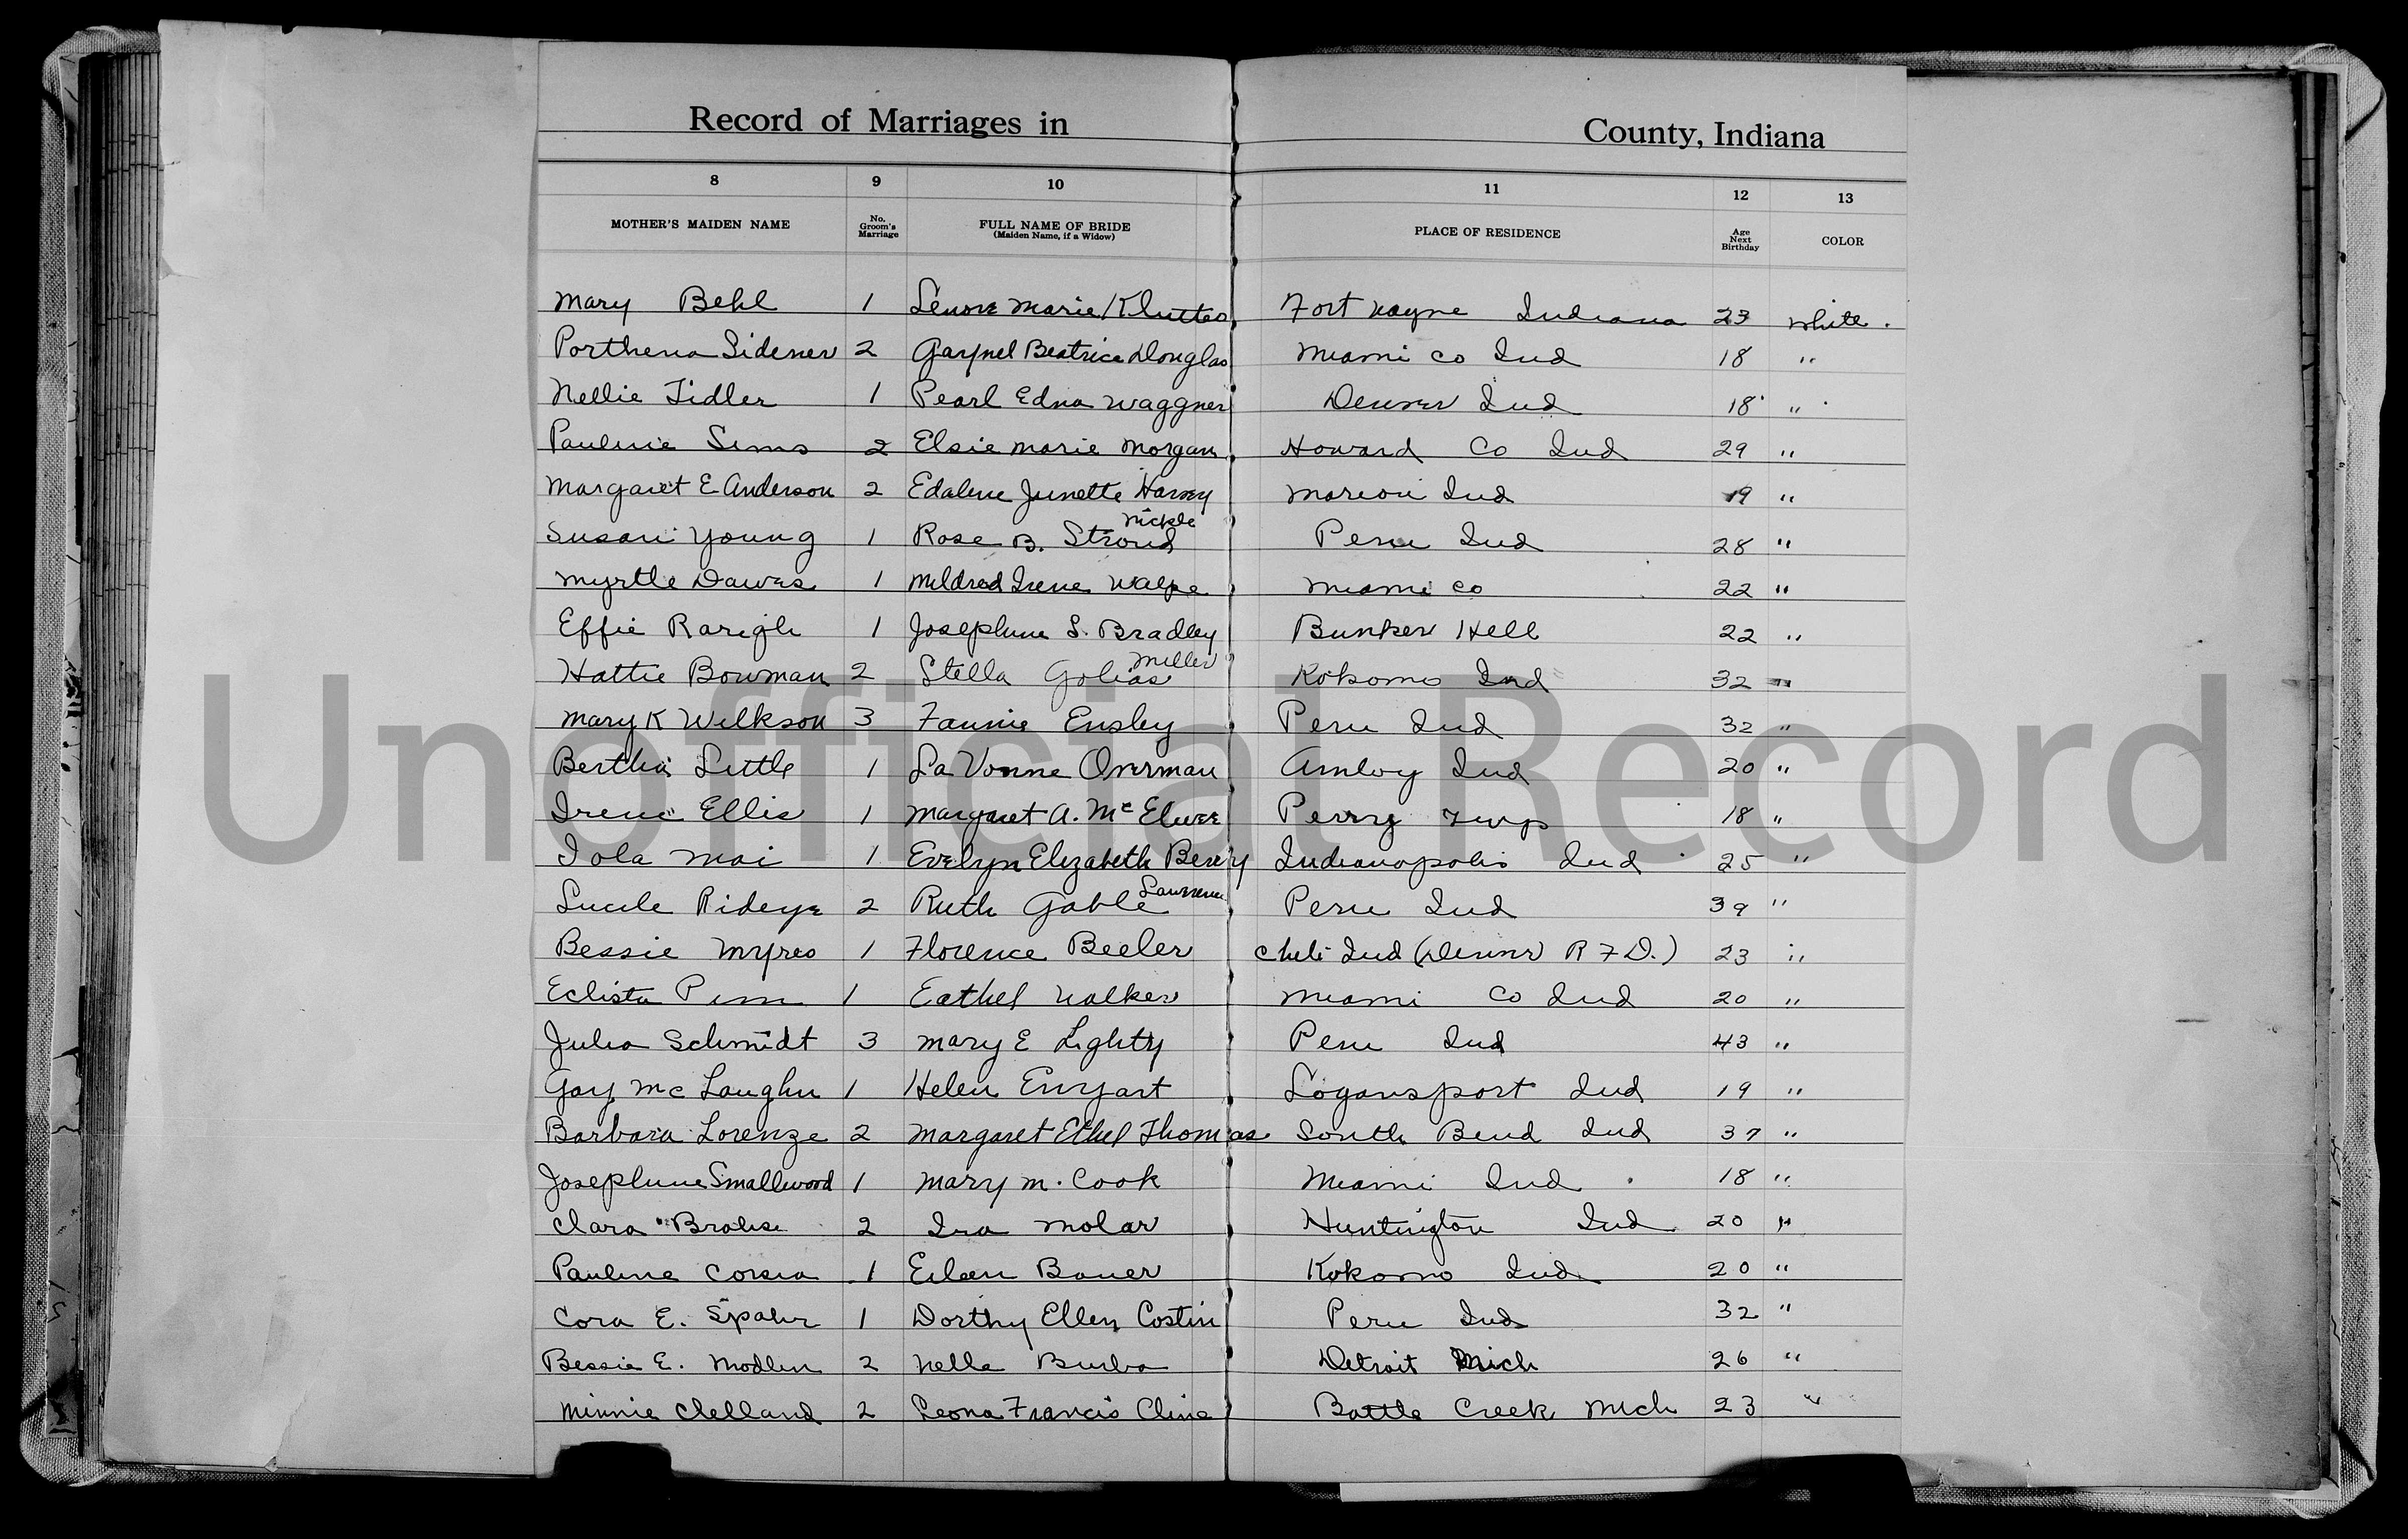 Record of Marriages in County, Indiana
8 9 10 11 12 13
MOTHER'S MAIDEN NAME No. Groom's Marriage FULL NAME OF BRIDE (Maiden Name, if a Widow) PLACE OF RESIDENCE Age Next Birthday COLOR
Mary Behl 1 Lenore Marie Kluttes Fort Wayne Indiana 23 White.
Porthena Sidener 2 Garynel Beatrice Douglas Miami Co Ind 18 "
Nellie Fidler 1 Pearl Edna Waggner Denver Ind 18 "
Pauline Sims 2 Elsie Marie Morgan Howard Co Ind 29 "
Margaret E Anderson 2 Edalene Junette Harvey Marion Ind 19 "
Susan Young 1 Rose B. Stroud Nickle Peru Ind 28 "
Myrtle Dawes 1 Mildred Irene Walpe Miami Co 22 "
Effie Rarigh 1 Josephine S. Bradley Bunker Hill 22 "
Hattie Bowman 2 Stella Golias Miller Kokomo Ind 32 "
Mary K Wilkson 3 Fannie Ensley Peru Ind 32 "
Bertha Little 1 La Vonne Overman Amboy Ind 20 "
Irene Ellis 1 Margaret A. McElwee Perry Twp 18 "
Iola Mai 1 Evelyn Elizabeth Berry Indianapolis Ind 25 "
Lucile Rideye 2 Ruth Gable Lawrence Peru Ind 39 "
Bessie Myres 1 Florence Beeler Chili Ind (Denver R F D.) 23 "
Eclista Pim 1 Eathel Walker Miami Co Ind 20 "
Julia Schmidt 3 Mary E Lighty Peru Ind 43 "
Gay McLaughn 1 Helen Enyart Logansport Ind 19 "
Barbara Lorenze 2 Margaret Ethel Thomas South Bend Ind 37 "
Josephine Smallwood 1 Mary M. Cook Miami Ind 18 "
Clara 2 Ira Molar Huntington Ind 20 "
Pauline Corsia 1 Eileen Bauer Kokomo Ind 20 "
Cora E. Spahr 1 Dorthy Ellen Costin Peru Ind 32 "
Bessie E. Modlin 2 Nella Burba Detroit Mich 26 "
Minnie Clelland 2 Leona Francis Cline Battle Creek Mich 23 "
Unofficial Record